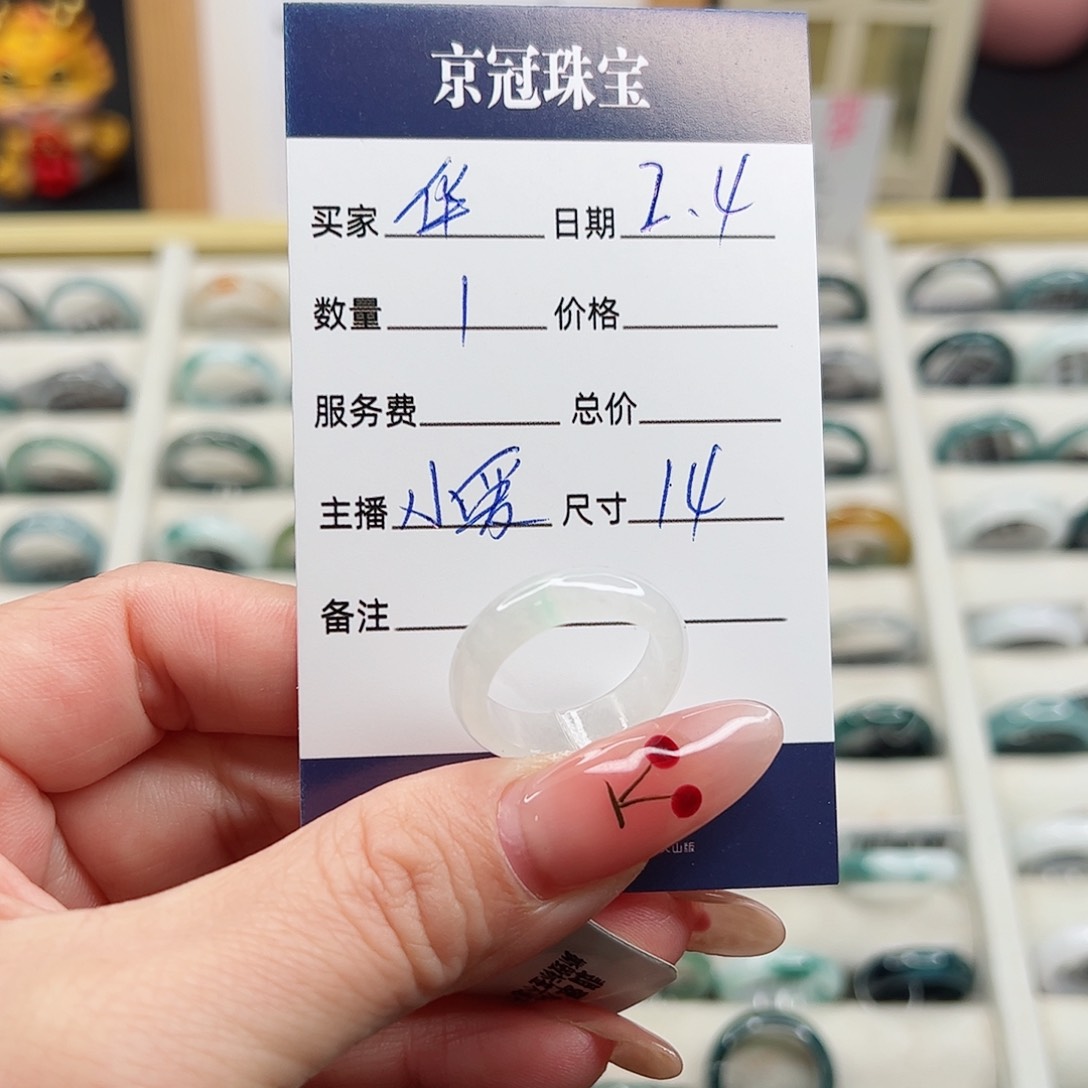 京冠珠宝
买家 华 日期 2.4
数量 1 价格
服务费 总价
主播 小爱 尺寸 14
备注